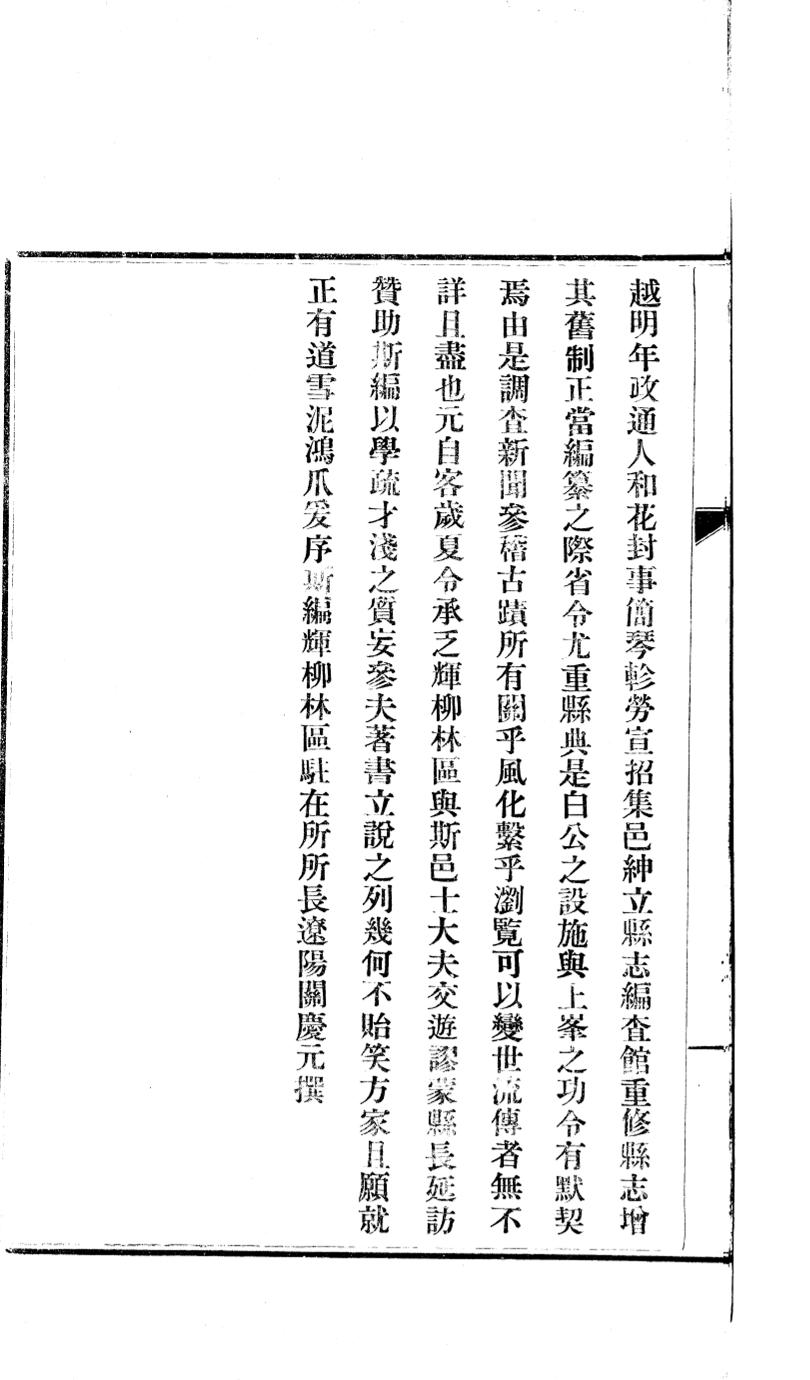 越明年政通人和花封事簡琴軫勞宣招集邑紳立縣志編査館重修縣志增
其舊制正當編纂之際省令尤重縣典是白公之設施與上峯之功令有默契
焉由是調査新聞參稽古蹟所有關乎風化繫乎瀏覽可以變世流傳者無不
詳且盡也元自客歲夏令承乏輝柳林區與斯邑士大夫交遊謬蒙縣長延訪
贊助斯編以學疏才淺之質妄參夫著書立說之列幾何不貽笑方家且願就
正有道雪泥鴻爪爰序斯編輝柳林區駐在所所長遼陽關慶元撰